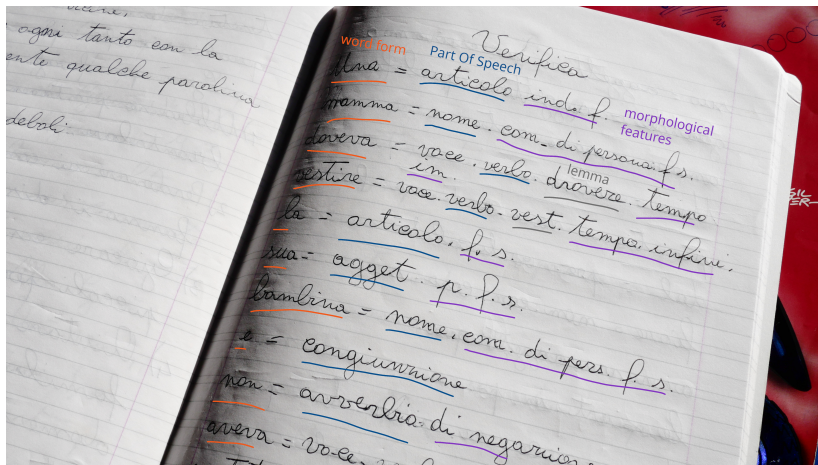 ogni tanto con la
ente qualche parolina
deboli.
Verifica
word form
Part Of Speech
Una = articolo ind. f.
morphological features
mamma = nome. com. di persona f. s.
doveva = voce. verbo. drovere. tempo
im.
lemma
vestire = voce. verbo. vest. tempo. infini.
la = articolo. f. s.
sua = agget. p. f. s.
bambina = nome. com. di pers. f. s.
e = congiunzione
non = avverbio di negazione
aveva = voce.